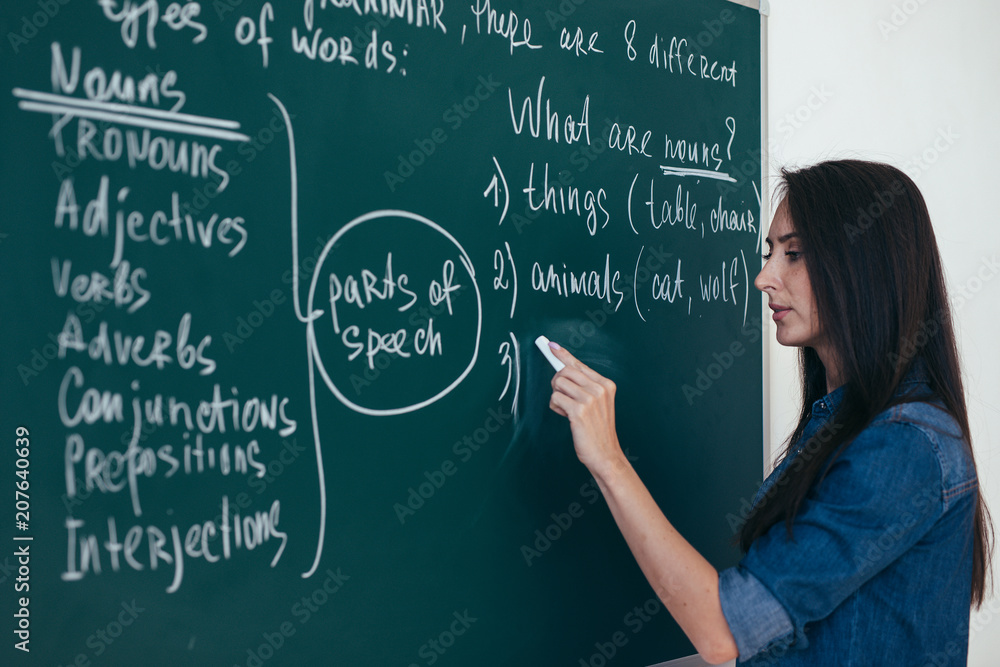 GRAMMAR, there are 8 different
types of words:
Nouns
Pronouns
Adjectives
Verbs
Adverbs
Conjunctions
Prepositions
Interjections
parts of
speech
What are nouns?
1) things (table, chair)
2) animals (cat, wolf)
3)
Adobe Stock | #207640639